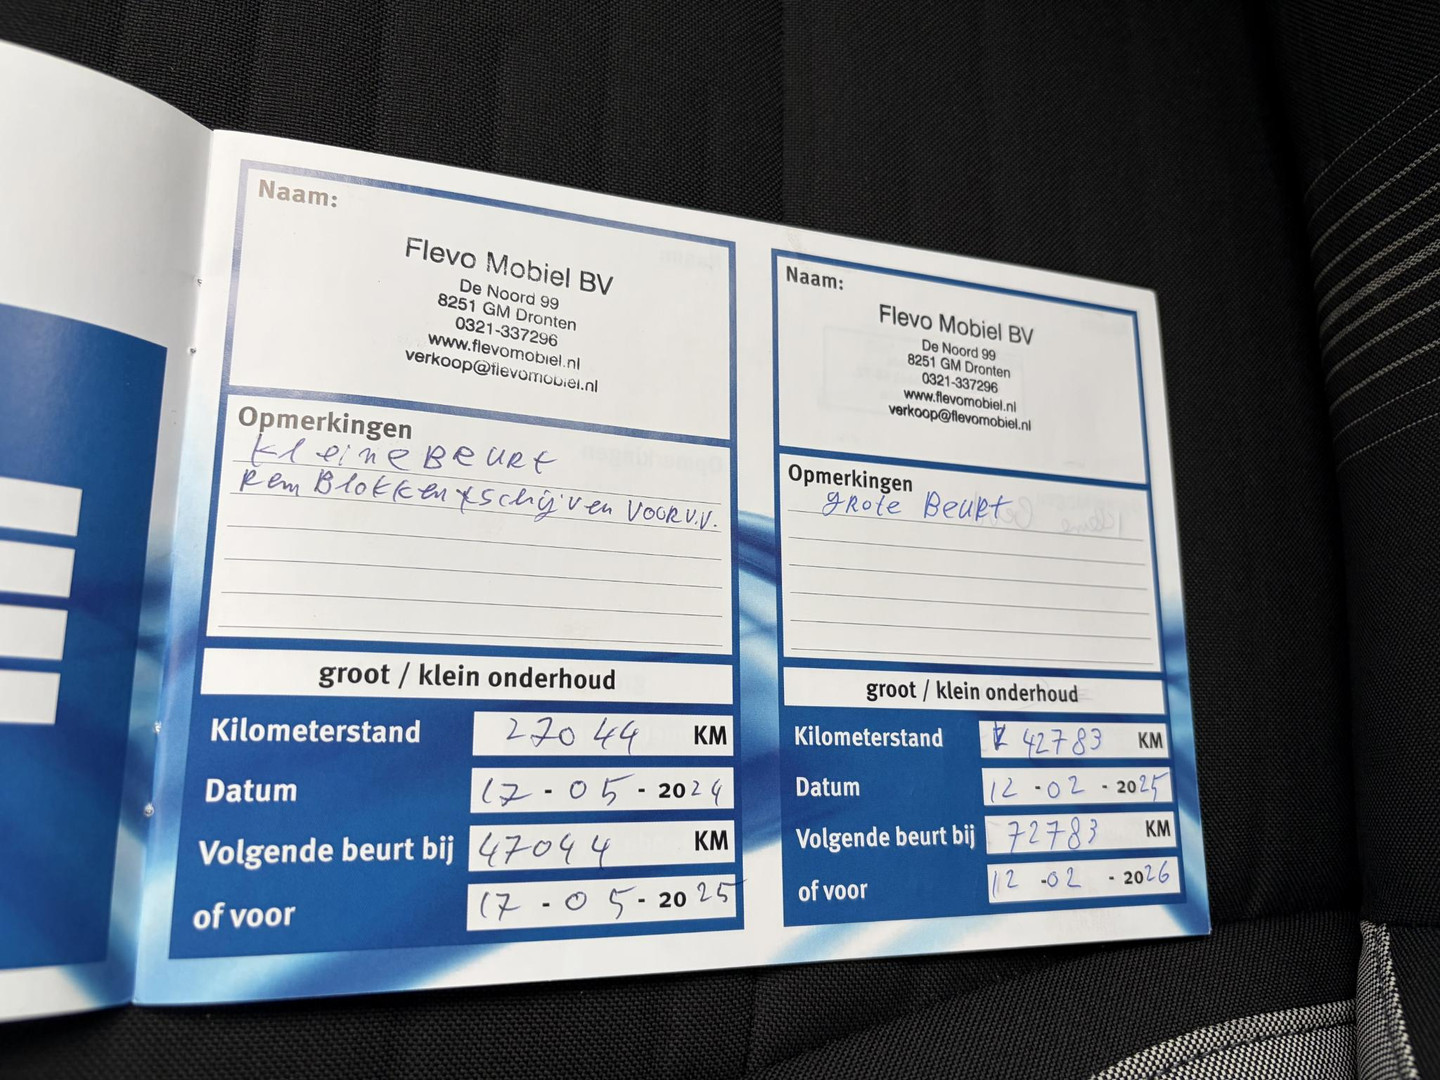 Naam:
Flevo Mobiel BV
De Noord 99
8251 GM Dronten
0321-337296
www.flevomobiel.nl
verkoop@flevomobiel.nl
Opmerkingen
kleine Beurt
Rem Blokken + schijven voor v.v.
groot / klein onderhoud
Kilometerstand 27044 KM
Datum 17 - 05 - 2024
Volgende beurt bij 47044 KM
of voor 17 - 05 - 2025
Naam:
Flevo Mobiel BV
De Noord 99
8251 GM Dronten
0321-337296
www.flevomobiel.nl
verkoop@flevomobiel.nl
Opmerkingen
grote Beurt
groot / klein onderhoud
Kilometerstand 42783 KM
Datum 12 - 02 - 2025
Volgende beurt bij 72783 KM
of voor 12 - 02 - 2026